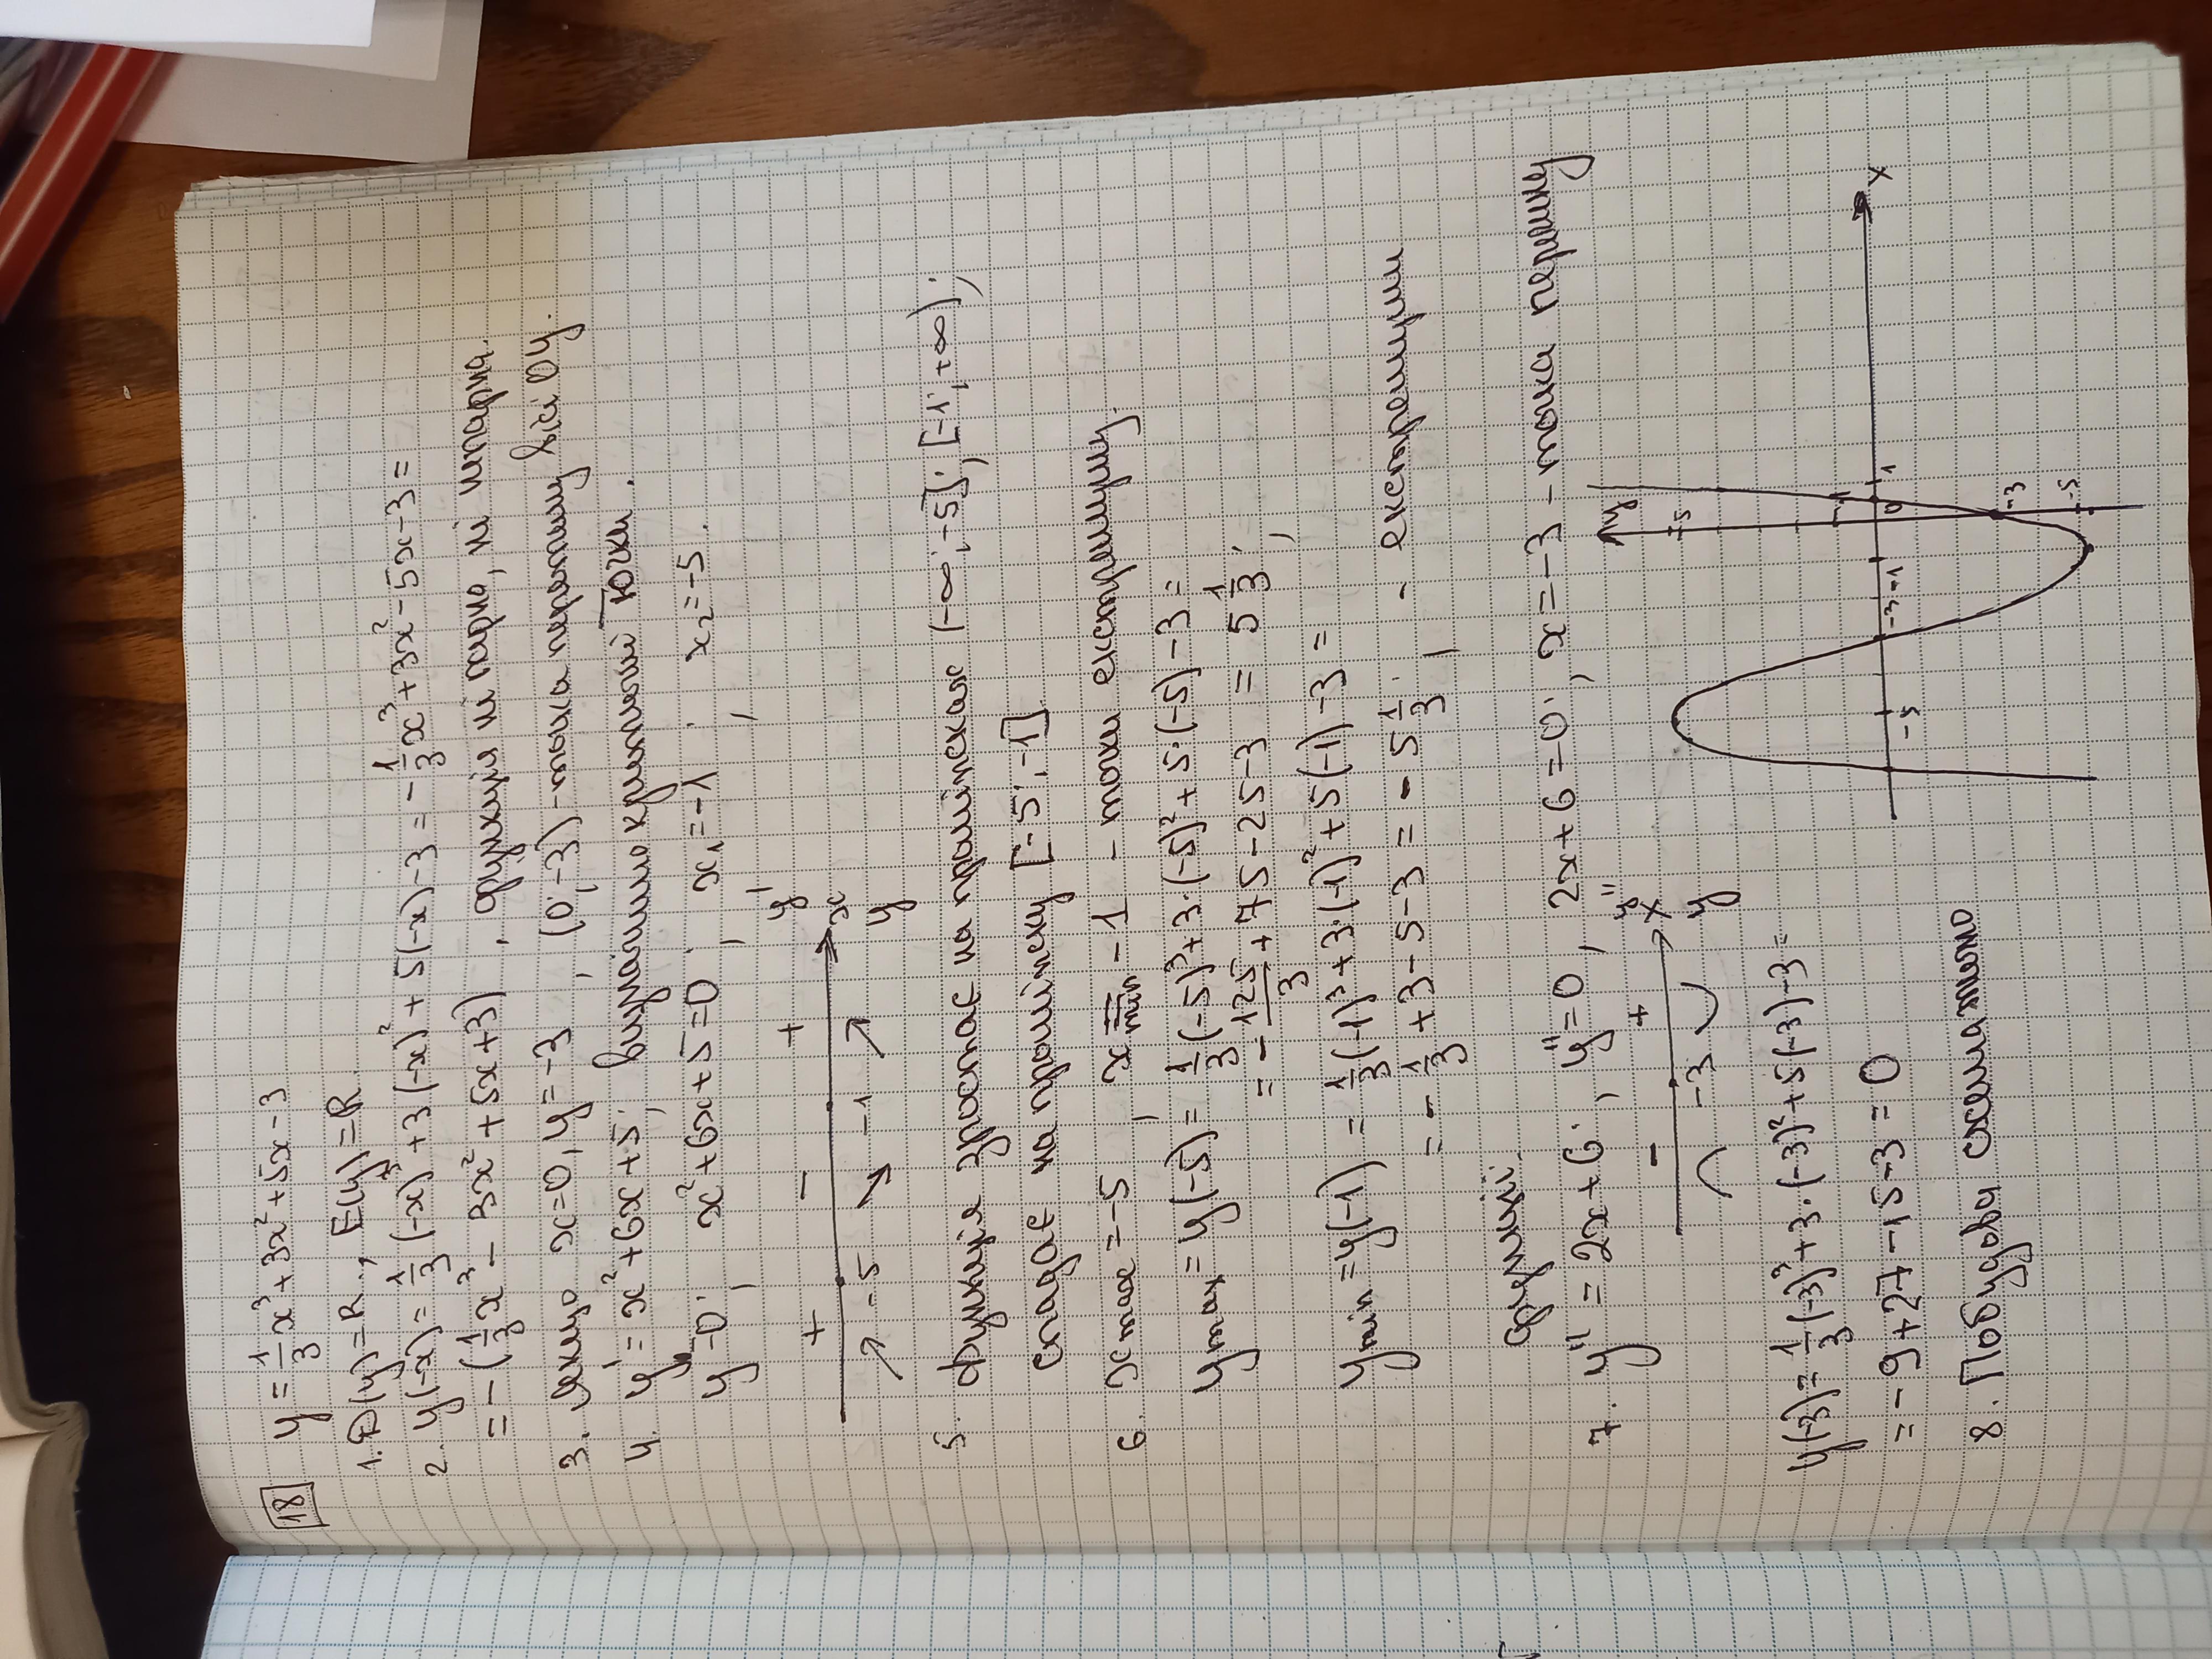 18
y = 1/3 x³ + 3x² + 5x - 3
1. D(y) = R; E(y) = R.
2. y(-x) = 1/3 (-x)³ + 3(-x)² + 5(-x) - 3 = -1/3 x³ + 3x² - 5x - 3 =
= -(1/3 x³ - 3x² + 5x + 3), функція ні парна, ні непарна.
3. якщо x = 0, y = -3; (0; -3) - точка перетину вісі OY.
4. y' = x² + 6x + 5; визначимо критичні точки.
y' = 0; x² + 6x + 5 = 0; x₁ = -1; x₂ = -5.
+ - + y'
-5 -1 x
↗ ↘ ↗ y
5. Функція зростає на проміжках (-∞; -5]; [-1; +∞);
спадає на проміжку [-5; -1]
6. x max = -5; x min = -1 - точки екстремуму.
y max = y(-5) = 1/3 (-5)³ + 3·(-5)² + 5·(-5) - 3 =
= -125/3 + 75 - 25 - 3 = 5 1/3;
y min = y(-1) = 1/3 (-1)³ + 3·(-1)² + 5(-1) - 3 =
= -1/3 + 3 - 5 - 3 = -5 1/3; - екстремуми
функції.
7. y'' = 2x + 6; y'' = 0; 2x + 6 = 0; x = -3 - точка перегину
- + y''
-3 x
y
y(-3) = 1/3 (-3)³ + 3·(-3)² + 5(-3) - 3 =
= -9 + 27 - 15 - 3 = 0
8. Побудова схематично
y
5
1
-5 -3 -1 0 1 x
-3
-5